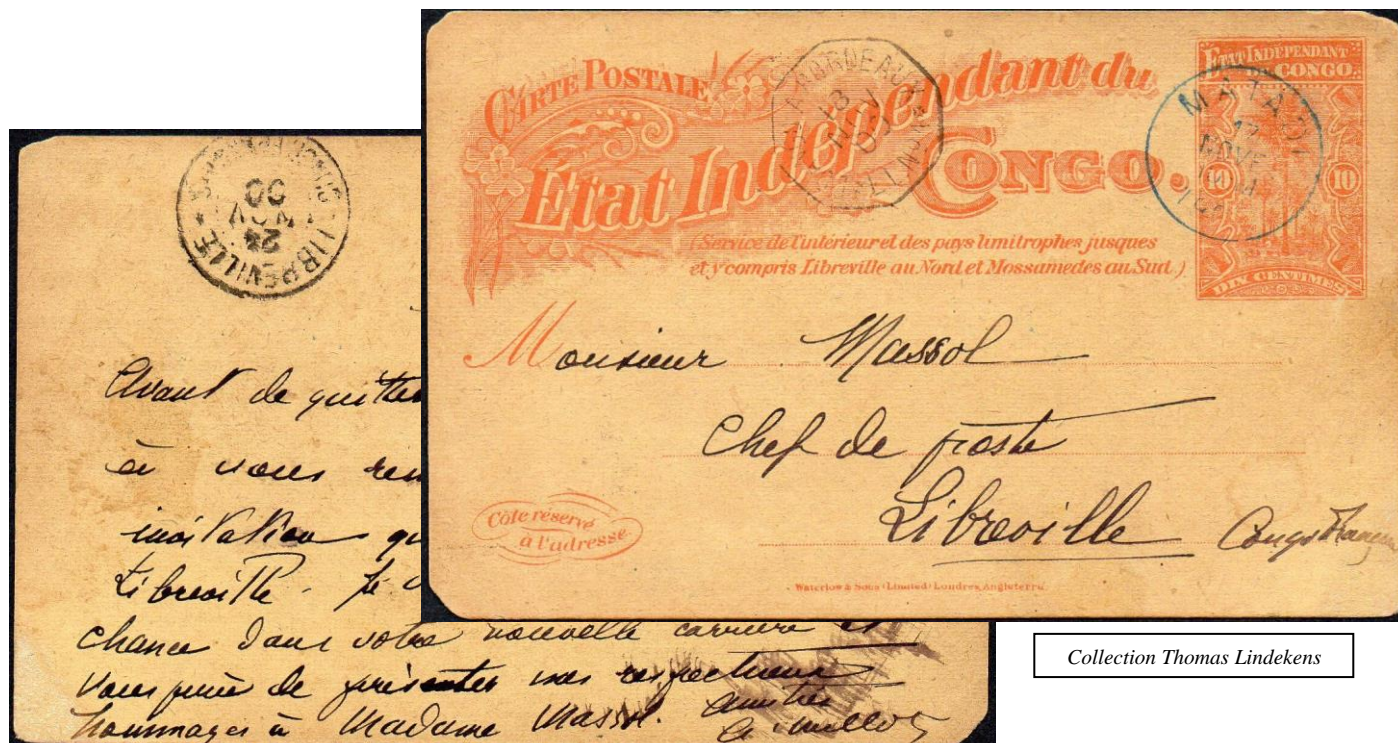 CARTE POSTALE
Etat Indépendant du
CONGO.
(Service de l'intérieur et des pays limitrophes jusques
et y compris Libreville au Nord et Mossamedes au Sud.)
ETAT INDÉPENDANT
CONGO.
10 10
DIX CENTIMES
MATADI
17
NOVE
BORDEAUX
Monsieur Massol
Chef de poste
Libreville Congo Français
Côté réservé
à l'adresse
Waterlow & Sons (Limited) Londres, Angleterre.
LIBREVILLE
24
NOV
00
Avant de quitter
à vous
invitation
Libreville. Je
chance dans votre nouvelle carrière et
vous prie de présenter nos respectueux
hommages à Madame Massol.
Collection Thomas Lindekens